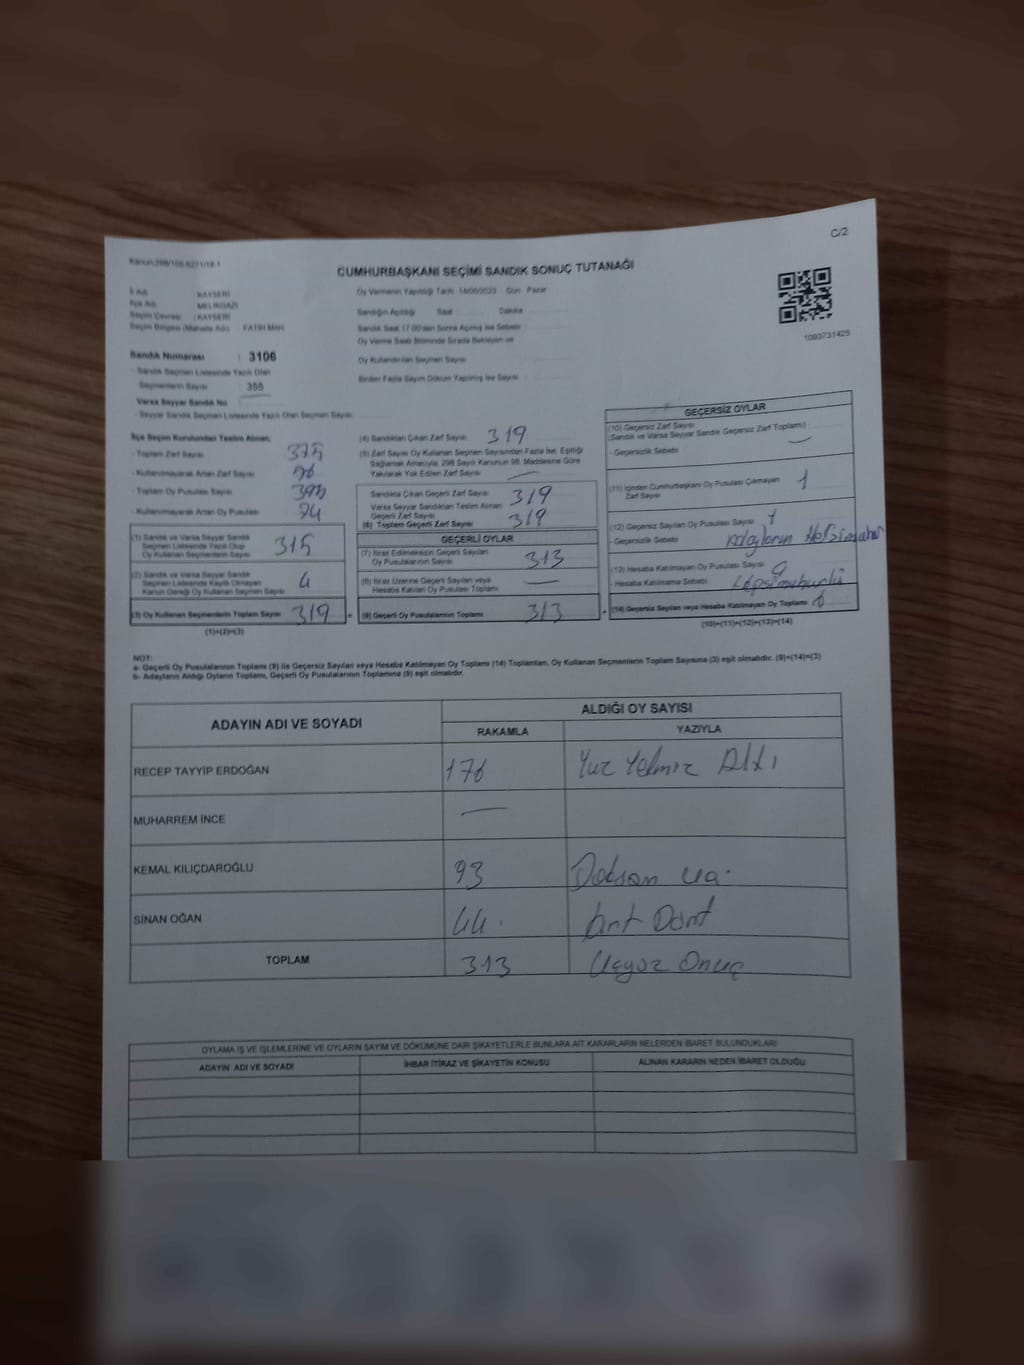 C/2
CUMHURBAŞKANI SEÇİMİ SANDIK SONUÇ TUTANAĞI
İl Adı : KAYSERİ
İlçe Adı MELİKGAZİ
Seçim Çevresi : KAYSERİ
Seçim Bölgesi (Mahalle Adı) FATİH MAH
Oy Vermenin Yapıldığı Tarih :14/05/2023 Gün : Pazar
Sandığın Açıldığı Saat Dakika
Sandık Saat 17:00'den Sonra Açılmış İse Sebebi
Oy Verme Saati Bitiminde Sırada Bekleyen ve
Oy Kullandırılan Seçmen Sayısı
Birden Fazla Sayım Döküm Yapılmış İse Sayısı
1093731425
Sandık Numarası : 3106
- Sandık Seçmen Listesinde Yazılı Olan
Seçmenlerin Sayısı : 355
Varsa Seyyar Sandık No
- Seyyar Sandık Seçmen Listesinde Yazılı Olan Seçmen Sayısı
İlçe Seçim Kurulundan Teslim Alınan;
- Toplam Zarf Sayısı 375
- Kullanılmayarak Artan Zarf Sayısı
- Toplam Oy Pusulası Sayısı
- Kullanılmayarak Artan Oy Pusulası 74
(1) Sandık ve Varsa Seyyar Sandık
Seçmen Listesinde Yazılı Olup
Oy Kullanan Seçmenlerin Sayısı 315
(2) Sandık ve Varsa Seyyar Sandık
Seçmen Listesinde Kayıtlı Olmayan
Kanun Gereği Oy Kullanan Seçmen Sayısı 4
(3) Oy Kullanan Seçmenlerin Toplam Sayısı 319
(1)+(2)=(3)
(4) Sandıktan Çıkan Zarf Sayısı 319
(5) Zarf Sayısı Oy Kullanan Seçmen Sayısından Fazla İse, Eşitliği
Sağlamak Amacıyla, 298 Sayılı Kanunun 98. Maddesine Göre
Yakılarak Yok Edilen Zarf Sayısı
Sandıkta Çıkan Geçerli Zarf Sayısı 319
Varsa Seyyar Sandıktan Teslim Alınan
Geçerli Zarf Sayısı
(6) Toplam Geçerli Zarf Sayısı 319
GEÇERLİ OYLAR
(7) İtiraz Edilmeksizin Geçerli Sayılan
Oy Pusulalarının Sayısı 313
(8) İtiraz Üzerine Geçerli Sayılan veya
Hesaba Katılan Oy Pusulaları Toplamı
(9) Geçerli Oy Pusulalarının Toplamı 313
GEÇERSİZ OYLAR
(10) Geçersiz Zarf Sayısı
(Sandık ve Varsa Seyyar Sandık Geçersiz Zarf Toplamı)
- Geçersizlik Sebebi
(11) İçinden Cumhurbaşkanı Oy Pusulası Çıkmayan
Zarf Sayısı 1
(12) Geçersiz Sayılan Oy Pusulası Sayısı
- Geçersizlik Sebebi
(13) Hesaba Katılmayan Oy Pusulası Sayısı
- Hesaba Katılmama Sebebi
(14) Geçersiz Sayılan veya Hesaba Katılmayan Oy Toplamı
(10)+(11)+(12)+(13)=(14)
NOT:
a- Geçerli Oy Pusulalarının Toplamı (9) ile Geçersiz Sayılan veya Hesaba Katılmayan Oy Toplamı (14) Toplamları, Oy Kullanan Seçmenlerin Toplam Sayısına (3) eşit olmalıdır. (9)+(14)=(3)
b- Adayların Aldığı Oyların Toplamı, Geçerli Oy Pusulalarının Toplamına (9) eşit olmalıdır.
ADAYIN ADI VE SOYADI ALDIĞI OY SAYISI
RAKAMLA YAZIYLA
RECEP TAYYİP ERDOĞAN 176 Yüz Yetmiş Altı
MUHARREM İNCE
KEMAL KILIÇDAROĞLU 93 Doksan
SİNAN OĞAN 44 Dört
TOPLAM 313 Üçyüz Onüç
OYLAMA İŞ VE İŞLEMLERİNE VE OYLARIN SAYIM VE DÖKÜMÜNE DAİR ŞİKAYETLERLE BUNLARA AİT KARARLARIN NELERDEN İBARET BULUNDUKLARI
ADAYIN ADI VE SOYADI İHBAR İTİRAZ VE ŞİKAYETİN KONUSU ALINAN KARARIN NEDEN İBARET OLDUĞU